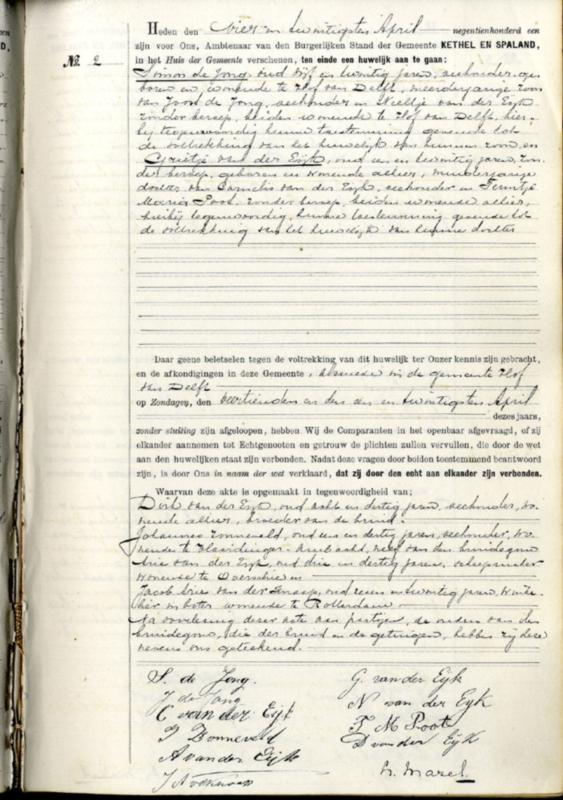 Heden den vier en twintigsten April negentienhonderd een
zijn voor Ons, Ambtenaar van den Burgerlijken Stand der Gemeente KETHEL EN SPALAND,
No. 2
in het Huis der Gemeente verschenen, ten einde een huwelijk aan te gaan:
Simon de Jong, oud vijf en twintig jaren, veehouder, ge-
boren en wonende te Hof van Delft, meerderjarige zoon
van Joost de Jong, veehouder en Neeltje van der Eijk
zonder beroep, beiden wonende te Hof van Delft, hier-
bij tegenwoordig hunne toestemming gevende tot
de voltrekking van het huwelijk van hunnen zoon en
Grietje van der Eijk, oud een en twintig jaren, zon-
der beroep, geboren en wonende alhier, minderjarige
dochter van Cornelis van der Eijk, veehouder en Teuntje
Maria Poot zonder beroep, beiden wonende alhier,
hierbij tegenwoordig, hunne toestemming gevende tot
de voltrekking van het huwelijk van hunne dochter
Daar geene beletselen tegen de voltrekking van dit huwelijk ter Onzer kennis zijn gebracht,
en de afkondigingen in deze Gemeente, alsmede in de gemeente Hof
van Delft
op Zondagen, den veertienden en den een en twintigsten April
dezes jaars,
zonder stuiting zijn afgeloopen, hebben Wij de Comparanten in het openbaar afgevraagd, of zij
elkander aannemen tot Echtgenooten en getrouw de plichten zullen vervullen, die door de wet
aan den huwelijken staat zijn verbonden. Nadat deze vragen door beiden toestemmend beantwoord
zijn, is door Ons in naam der wet verklaard, dat zij door den echt aan elkander zijn verbonden.
Waarvan deze akte is opgemaakt in tegenwoordigheid van;
Dirk van der Eijk, oud acht en dertig jaren, veehouder, wo-
nende alhier, broeder van de bruid.
Johannes Zonneveld, oud een en dertig jaren, veehouder, wo-
nende te Vlaardinger-Ambacht, neef van den bruidegom
Arie van der Eijk, oud drie en dertig jaren,
wonende te Overschie en
Jacob Arie van der oud zeven en twintig jaren,
in boter wonende te Rotterdam
Na voorlezing dezer akte aan partijen, de ouders van den
bruidegom, die der bruid en de getuigen, hebben zij deze
nevens ons geteekend.
S. de Jong.
G. van der Eijk
J de Jong
N van der Eijk
C van der Eijk
T M Poot
J Zonneveld
D van der Eijk
A van der Eijk